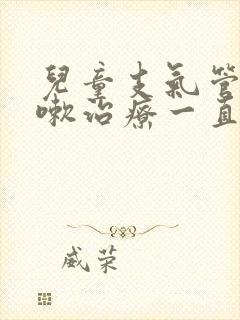 兒童支氣管
嗽治療一直
威荣